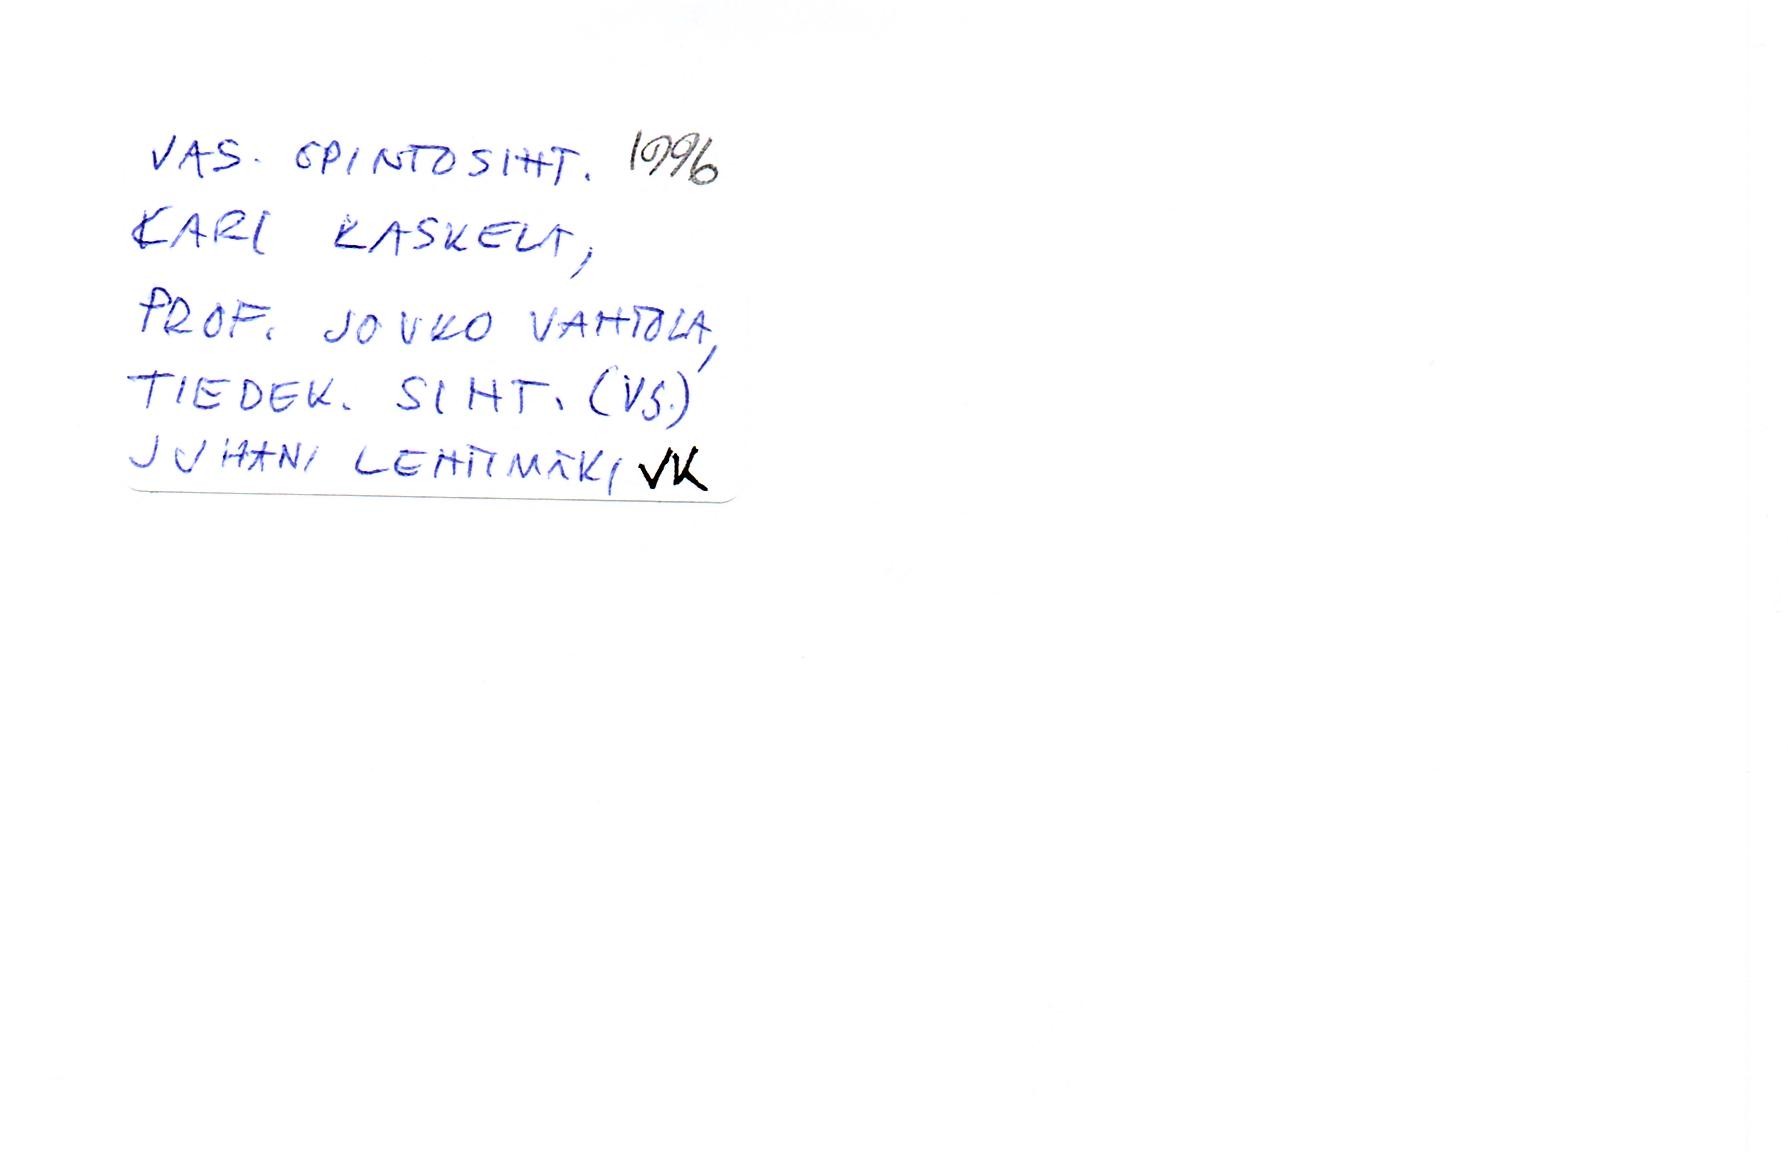 VAS. OPINTOSIHT. 1996
KARI KASKELA,
PROF. JOUKO VAHTOLA,
TIEDEK. SIHT. (VS.)
JUHANI LEHTIMÄKI VK